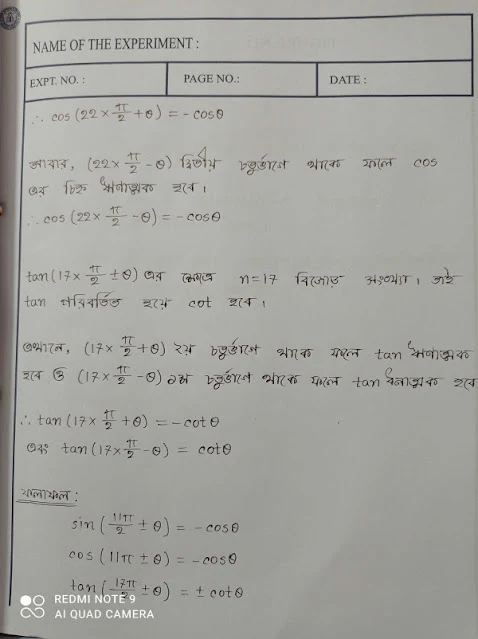 NAME OF THE EXPERIMENT :
EXPT. NO. :
PAGE NO.:
DATE :
∴ cos (22 × π/2 + θ) = - cosθ
আবার, (22 × π/2 - θ) দ্বিতীয় চতুর্ভাগে থাকে ফলে cos
এর চিহ্ন ঋণাত্মক হবে।
∴ cos (22 × π/2 - θ) = - cosθ
tan (17 × π/2 ± θ) এর ক্ষেত্রে n = 17 বিজোড় সংখ্যা। তাই
tan পরিবর্তিত হয়ে cot হবে।
এখানে, (17 × π/2 + θ) ২য় চতুর্ভাগে থাকে ফলে tan ঋণাত্মক
হবে ও (17 × π/2 - θ) ১ম চতুর্ভাগে থাকে ফলে tan ধনাত্মক হবে
∴ tan (17 × π/2 + θ) = - cotθ
এবং tan (17 × π/2 - θ) = cotθ
ফলাফল :
sin (11π/2 ± θ) = - cosθ
cos (11π ± θ) = - cosθ
tan (17π/2 ± θ) = ± cotθ
REDMI NOTE 9
AI QUAD CAMERA